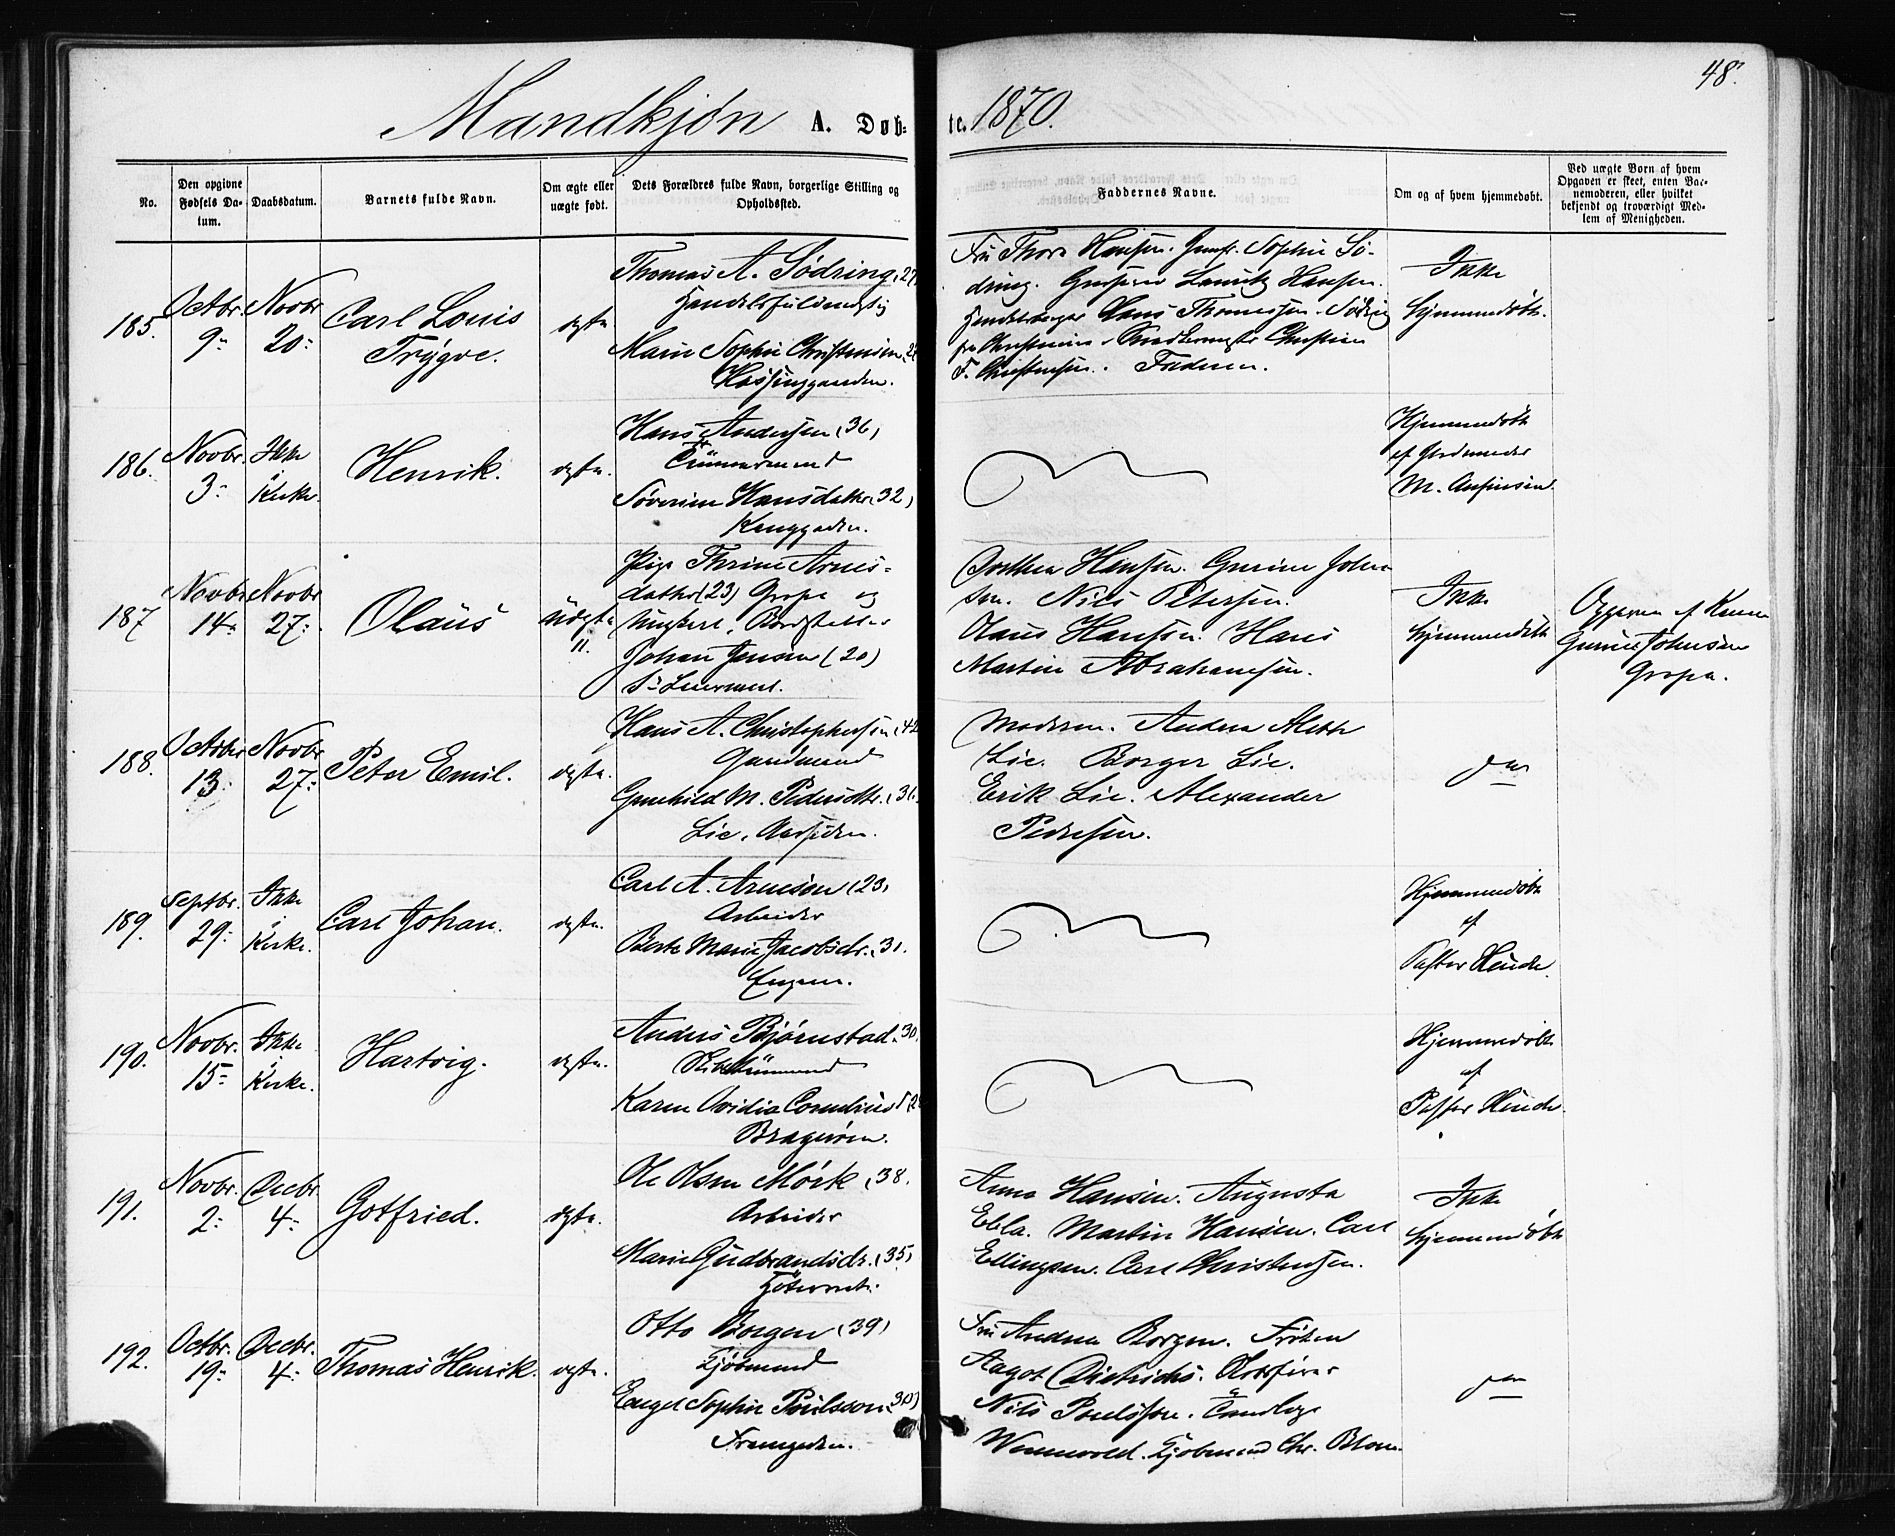 48.
Mandkjøn A. Døb-
te. 1870.
No.
Den opgivne Fødsels Da-
tum.
Daabsdatum.
Barnets fulde Navn.
Om ægte eller
uægte født.
Dets Forældres fulde Navn, borgerlige Stilling og
Opholdssted.
Faddernes Navne.
Om og af hvem hjemmedøbt.
Ved uægte Børn af hvem
Opgaven er skeet, enten Bar-
nemoderen, eller hvilket
bekjendt og troværdigt Med-
lem af Menigheden.
185.
Octbr.
9-
Novbr
20-
Carl Louis
Trygve.
ægte
Thomas A. Södring, 27,
Handelsfuldmægtig
Marie Sophie Christensen, 2
Fru Thora Hansen. Jomfr. Sophie Sö-
dring. Lauritz Hansen.
Hans Thomessen Södring
fra Christiania. Christian
F. Christensen. Faderen.
Ikke
hjemmedøbt.
186.
Novbr.
3-
Ikke
i
Kirke.
Henrik.
ægte.
Hans Andersen (36)
Tömmermand
Søverine Hansdatter (32)
Hjemmedøbt
af Jordemoder
M.
187
Novbr
14-
Novbr
27-
Olaus
Uægte
11.
Pige Thrine Arnes-
datter (23) Gropa og
Ungkarl,
Johan Jensen (20)
Dorthea Hansen. Gurine Johan
sen. Nils Petersen.
Olaus Hansen. Hans
Martin Abrahamsen.
Ikke
hjemmedøbt
Opgaven af Kone
Gurine Johansen
Gropa.
188.
Octbr
13-
Novbr
27-
Peter Emil.
ægte.
Hans A. Christophersen (42
Gaardmand
Gunhild M. Pedersdtr. (36.
Lie, Aassiden.
Moderen. Andrea
Lie. Borger Lie.
Erik Lie. Alexander
Pedersen.
do
189.
Septbr.
29-
Ikke
i
Kirke.
Carl Johan.
ægte.
Carl A. Arnesen (23,
Arbeider
Berte Marie Jacobsdr. (31.
Engene.
Hjemmedøbt
af
Pastor Heuch.
190.
Novbr.
15-
Ikke
i
Kirke.
Hartvig.
ægte.
Anders Bjørnstad. 30.
Karen Ovidia Cornelius d (2
Bragerøen.
Hjemmedøbt
af
Pastor Heuch.
191.
Novbr.
2-
Decbr.
4-
Gotfried.
ægte.
Ole Olsen Mörk (38.
Arbeider
Marie Gudbrandsdr. (35)
Anna Hansen. Augusta
Ebla. Martin Hansen. Carl
Ellingsen. Carl Christensen.
Ikke
hjemmedøbt
192.
Octbr.
19-
Decbr.
4-
Thomas Henrik.
ægte.
Otto Borgen (39)
Kjöbmand
Engel Sophie Poülsson (30)
Fru Andrea Borgen. Frøken
Aagot Dietrichs.
Nils Poulsson.
Wennevold. Kjøbmand Chr. Blom.
do